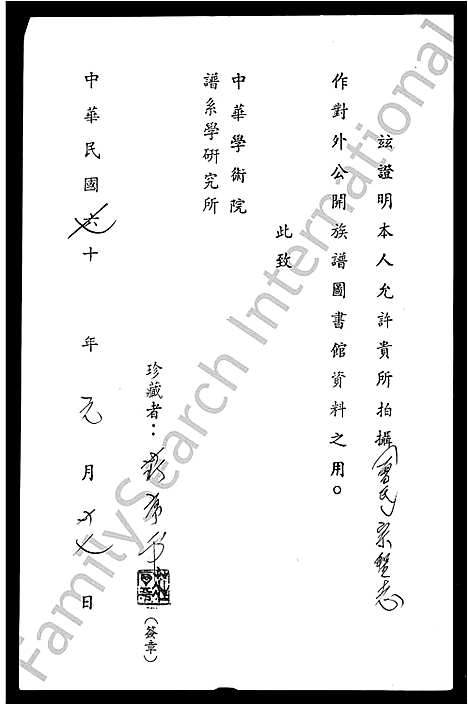 茲證明本人允許貴所拍攝曾氏宗聖志
作對外公開族譜圖書館資料之用。
此致
中華學術院
譜系學研究所
珍藏者：
（簽章）
中華民國六十年元月日
FamilySearch International